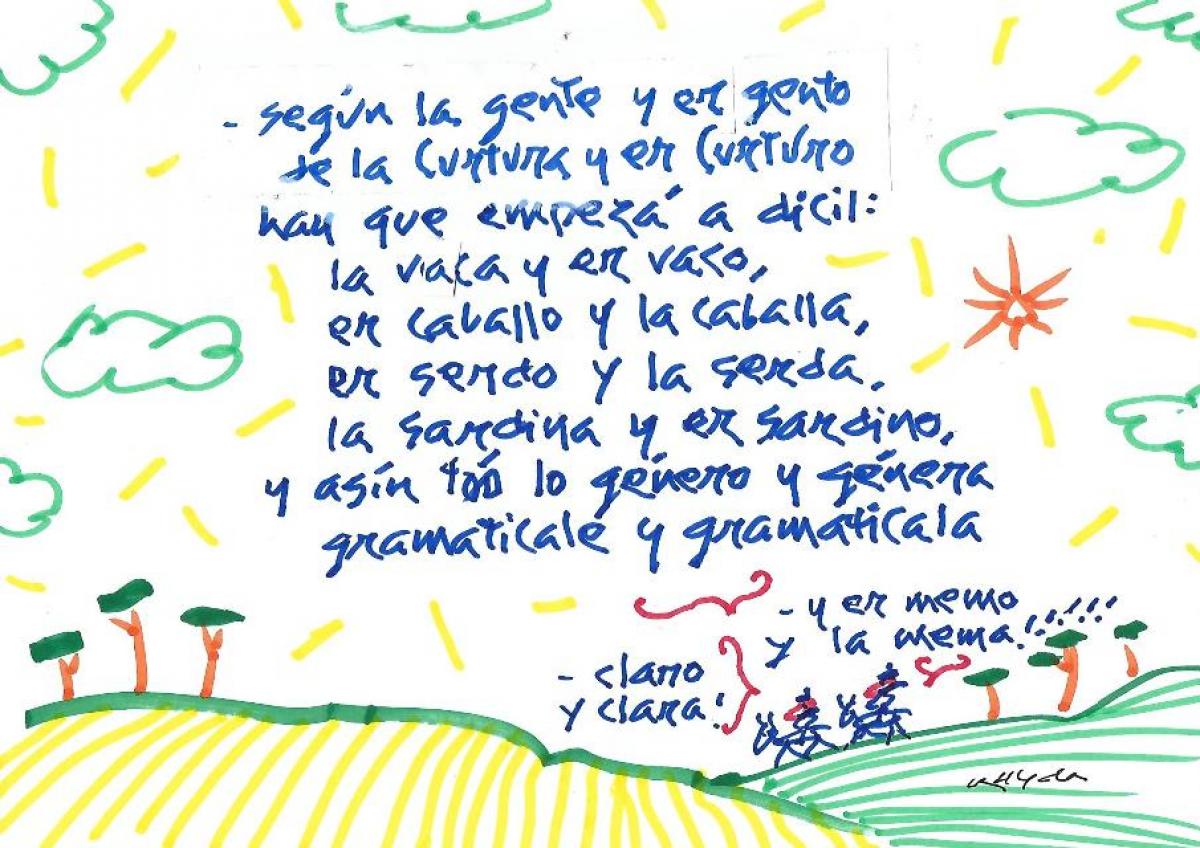 - según la gente y er gento
de la curtura y er curturo
hay que empezá a dicil:
la vaca y er vaco,
er caballo y la caballa,
er serdo y la serda,
la sardina y er sardino,
y asín tóo lo género y génera
gramaticale y gramáticala
- y er memo
y la mema!.!.!.!.!
- claro
y clara!